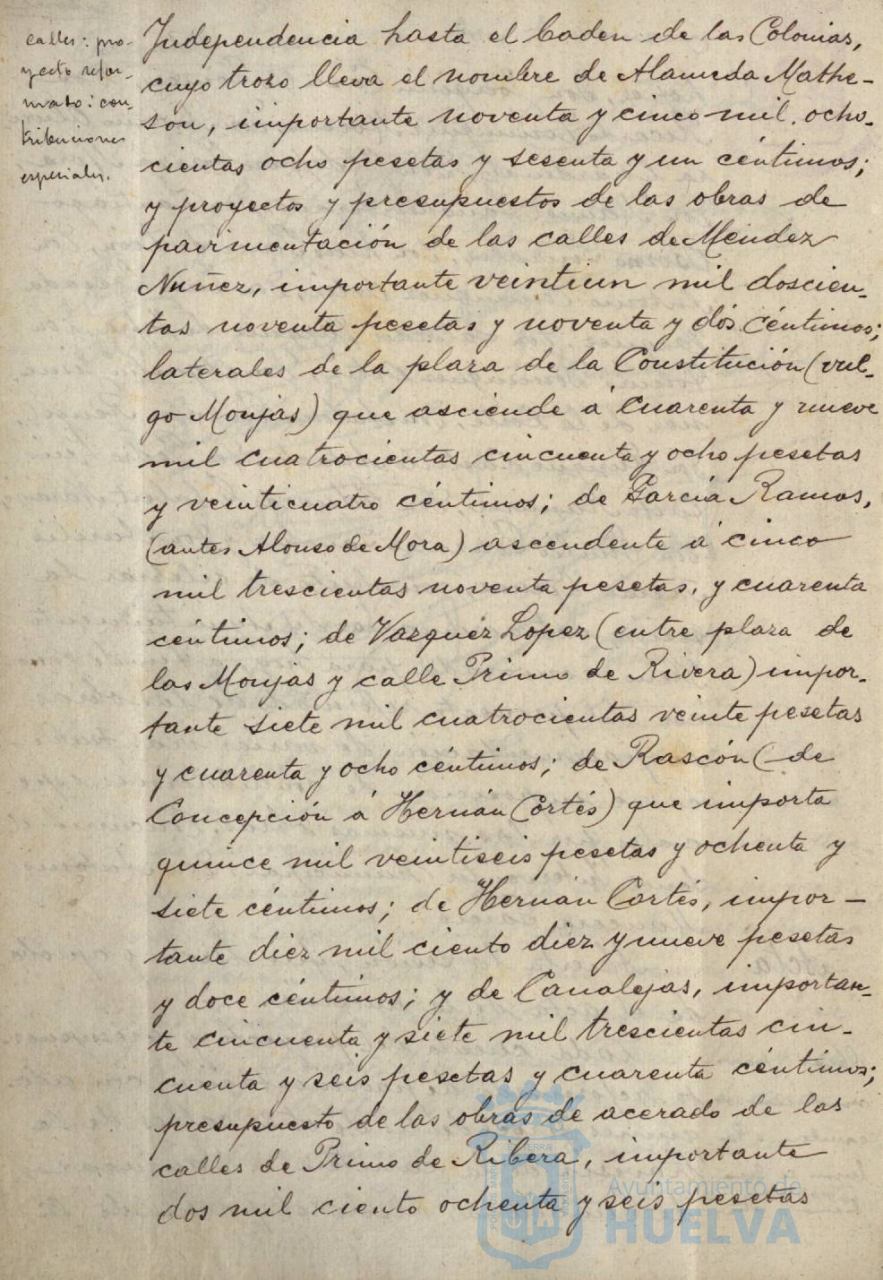 calles: pro-
yecto refor-
mado: con-
tribuciones
especiales.
Independencia hasta el baden de las Colonias,
cuyo trozo lleva el nombre de Alameda Mathe-
son, importante noventa y cinco mil ocho-
cientas ocho pesetas y sesenta y un céntimos;
y proyectos y presupuestos de las obras de
pavimentación de las calles de Mendez
Nuñez, importante veintiun mil doscien-
tas noventa pesetas y noventa y dós céntimos;
laterales de la plaza de la Constitución (vul-
go Monjas) que asciende á cuarenta y nueve
mil cuatrocientas cincuenta y ocho pesetas
y veinticuatro céntimos; de García Ramos,
(antes Alonso de Mora) ascendente á cinco
mil trescientas noventa pesetas, y cuarenta
céntimos; de Vazquez Lopez (entre plaza de
las Monjas y calle Primo de Rivera) impor-
tante siete mil cuatrocientas veinte pesetas
y cuarenta y ocho céntimos; de Rascón (de
Concepción á Hernán Cortés) que importa
quince mil veintiseis pesetas y ochenta y
siete céntimos; de Hernán Cortés, impor-
tante diez mil ciento diez y nueve pesetas
y doce céntimos; y de Canalejas, importan-
te cincuenta y siete mil trescientas cin-
cuenta y seis pesetas y cuarenta céntimos;
presupuesto de las obras de acerado de las
calles de Primo de Ribera, importante
dos mil ciento ochenta y seis pesetas
Ayuntamiento de
HUELVA